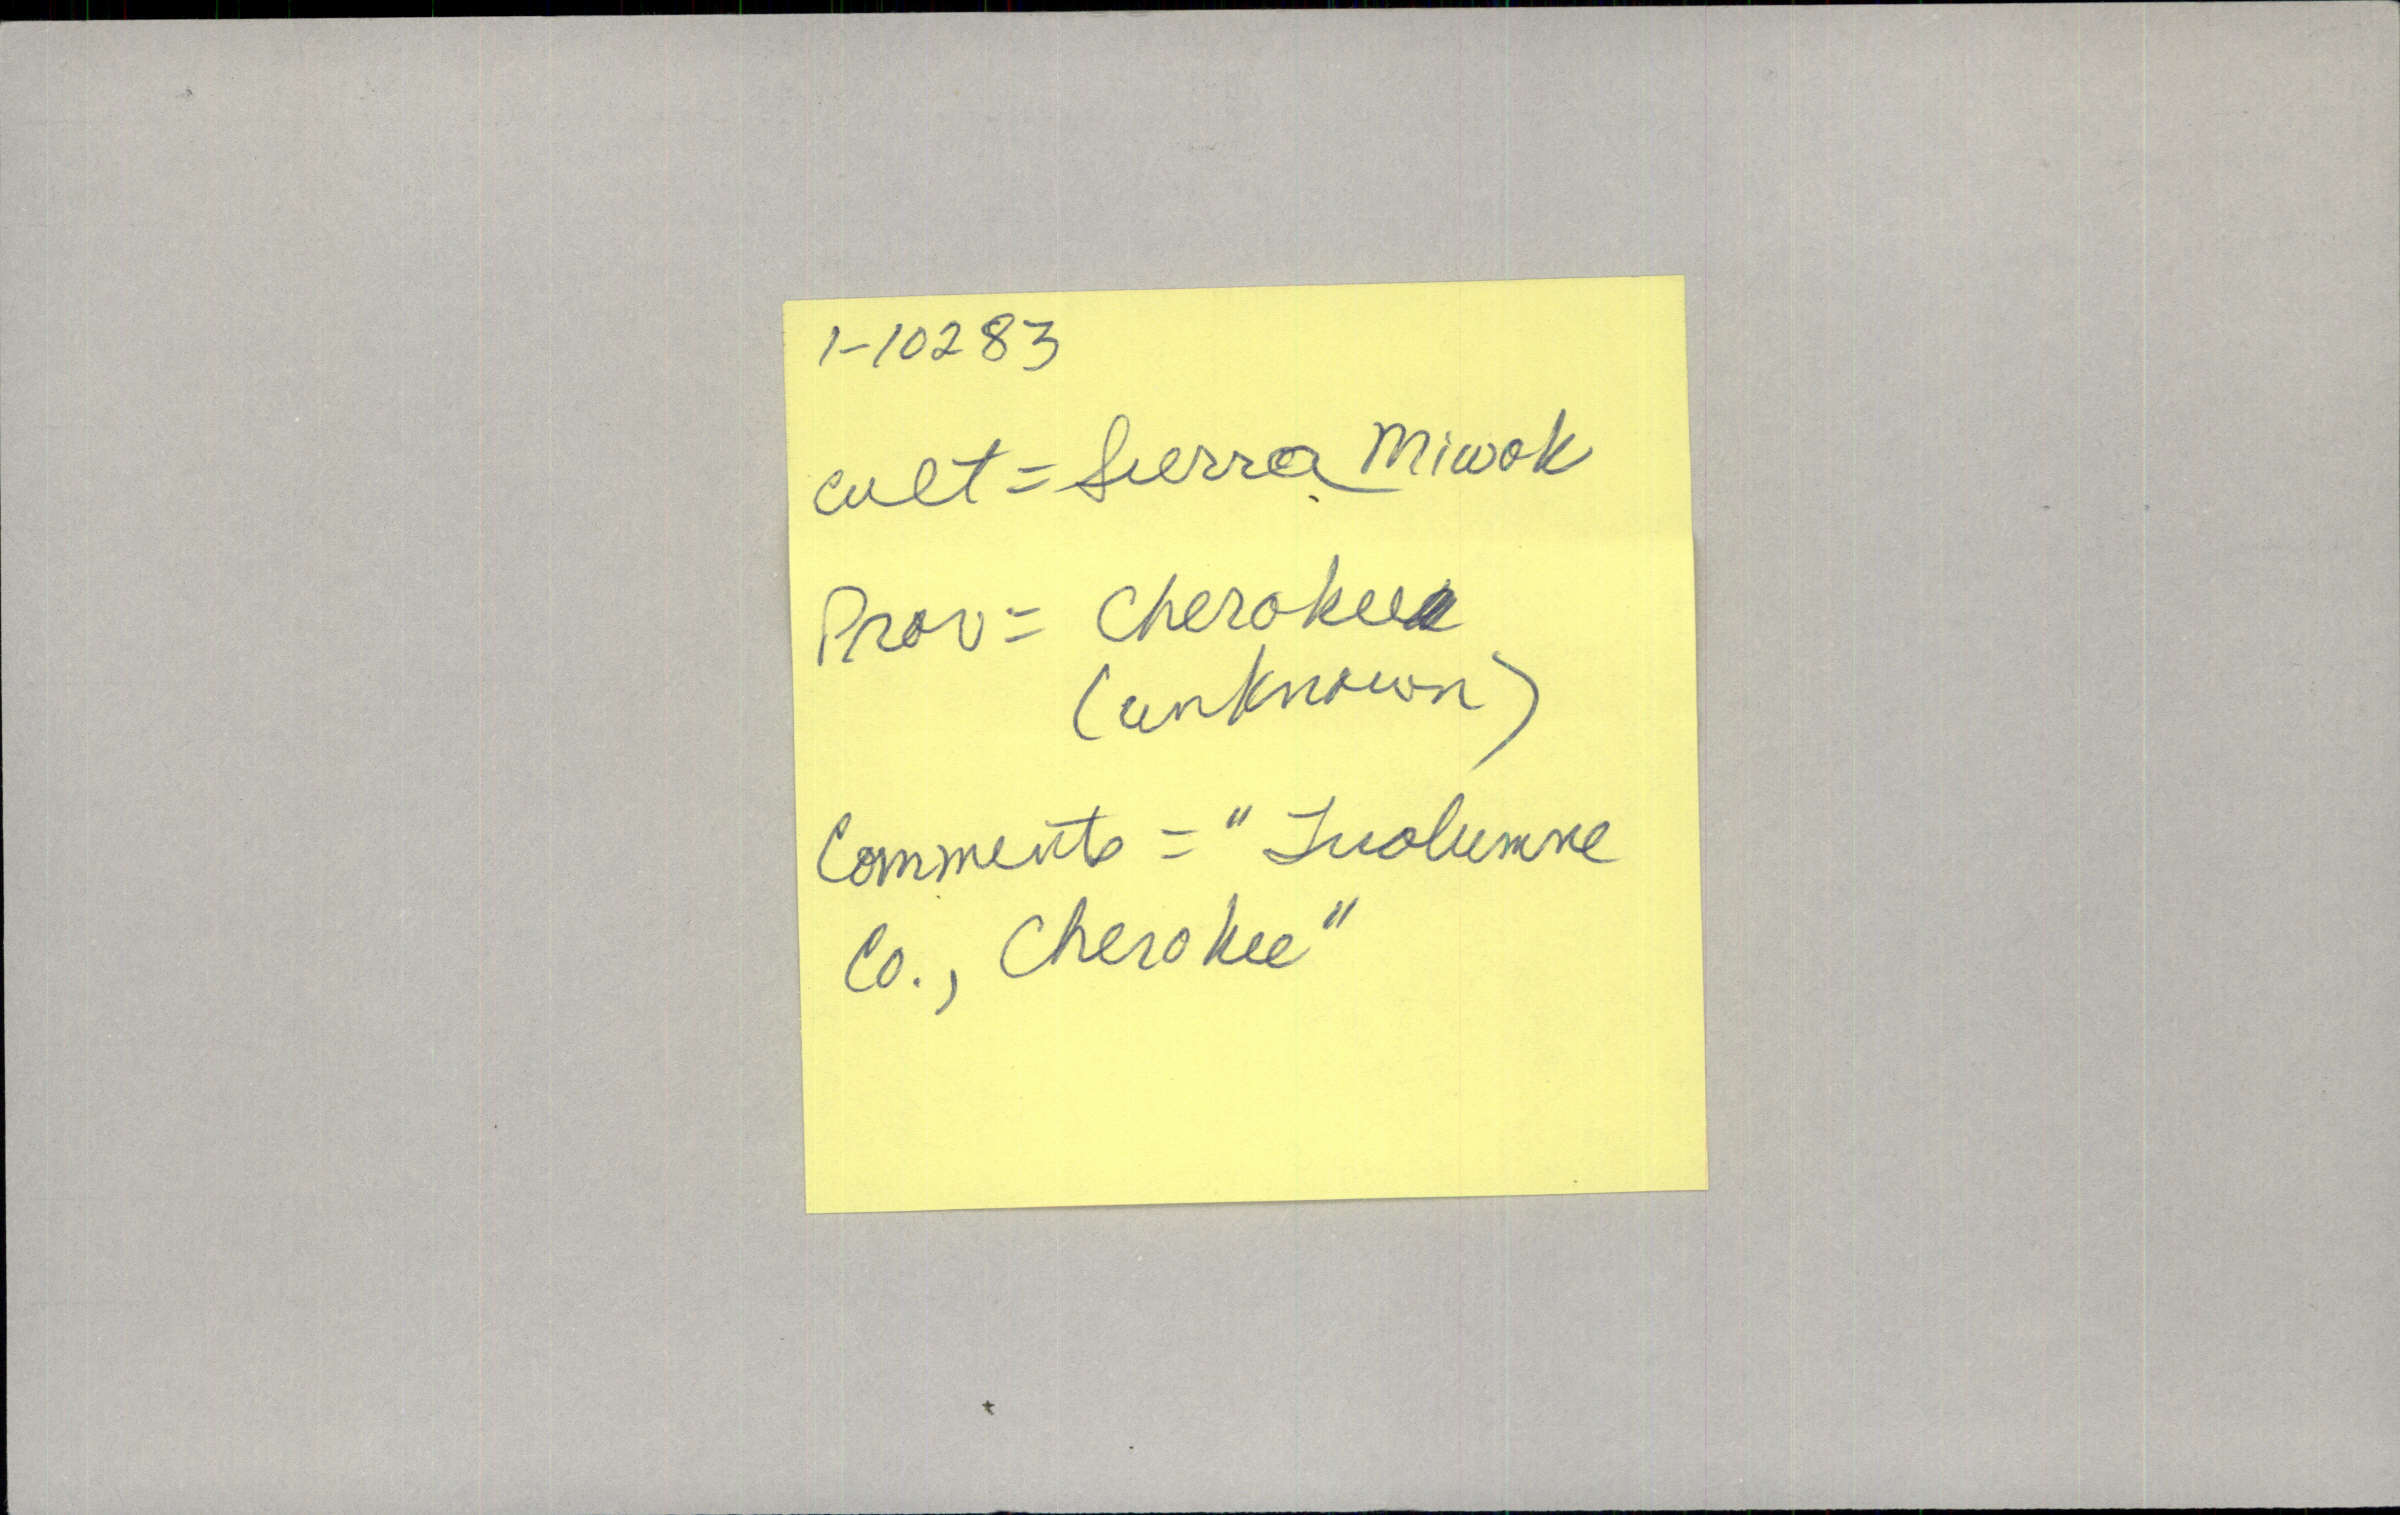 1-10283
cult = Sierra Miwok
Prov = Cherokee
(unknown)
Comments = "Tuolumne
Co., Cherokee"